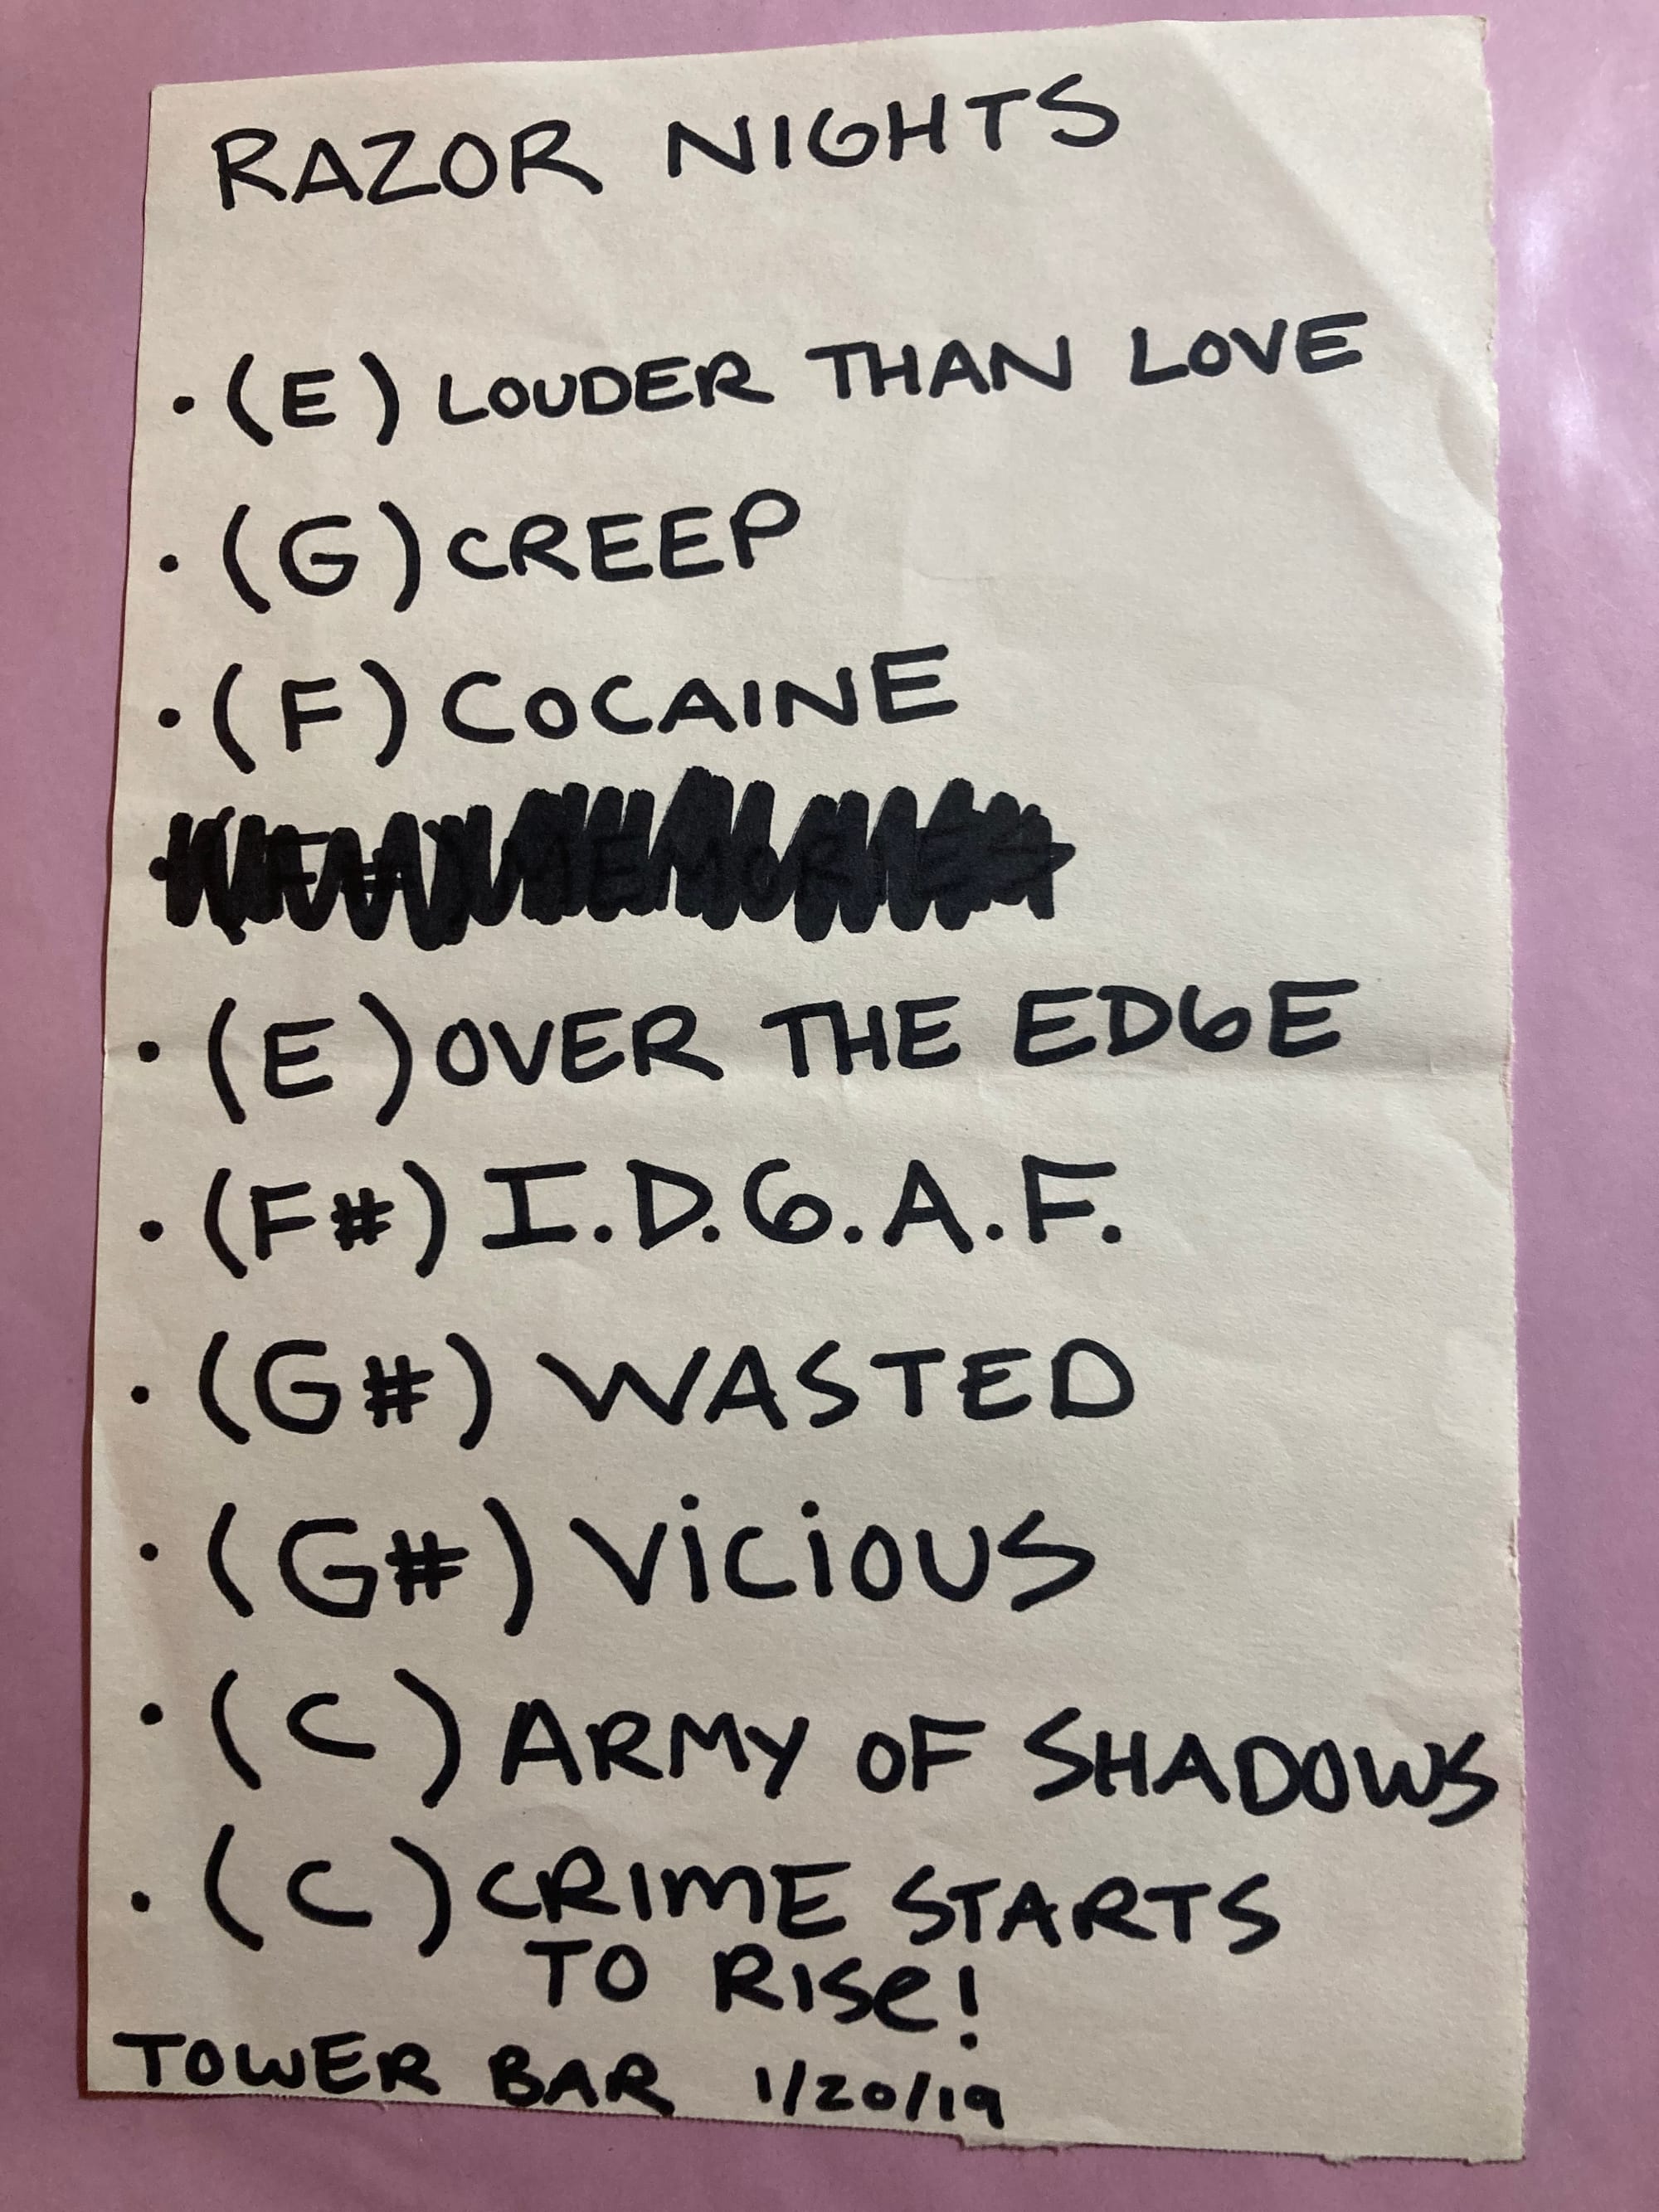 RAZOR NIGHTS
• (E) LOUDER THAN LOVE
• (G) CREEP
• (F) COCAINE
• (E) OVER THE EDGE
• (F#) I.D.G.A.F.
• (G#) WASTED
• (G#) ViCiOUS
• (C) ARMY OF SHADOWS
• (C) CRIME STARTS
TO RISe!
TOWER BAR 1/20/19